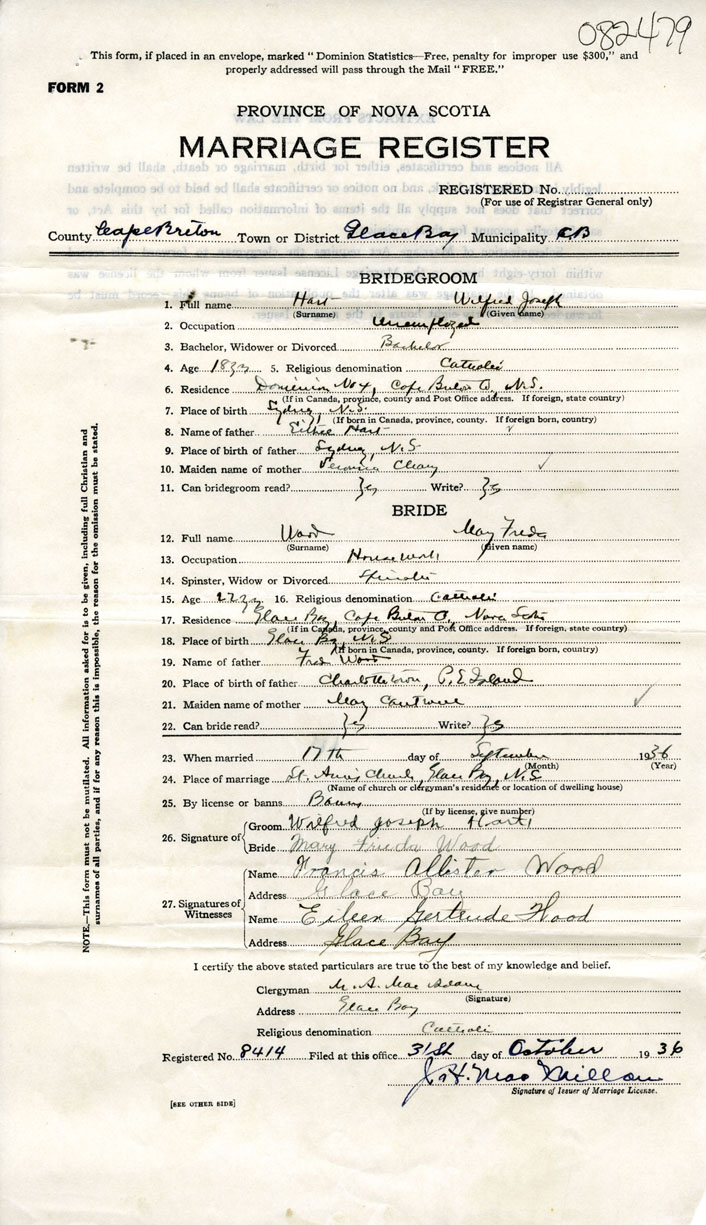 082479
This form, if placed in an envelope, marked "Dominion Statistics—Free, penalty for improper use $300," and
properly addressed will pass through the Mail "FREE."
FORM 2
PROVINCE OF NOVA SCOTIA
MARRIAGE REGISTER
REGISTERED No.
(For use of Registrar General only)
County Cape Breton Town or District Glace Bay Municipality C.B
BRIDEGROOM
1. Full name Hart Wilfred Joseph
(Surname) (Given name)
2. Occupation Unemployed
3. Bachelor, Widower or Divorced Bachelor
4. Age 18 5. Religious denomination Catholic
6. Residence Dominion No 4, Cape Breton Co, N.S.
(If in Canada, province, county and Post Office address. If foreign, state country)
7. Place of birth Sydney, N.S.
(If born in Canada, province, county. If foreign born, country)
8. Name of father Hart
9. Place of birth of father Sydney, N.S
10. Maiden name of mother Veronica Cleary
11. Can bridegroom read? Yes Write? Yes
BRIDE
12. Full name Wood May Freda
(Surname) (Given name)
13. Occupation Housework
14. Spinster, Widow or Divorced Spinster
15. Age 22 16. Religious denomination Catholic
17. Residence Glace Bay, Cape Breton Co, Nova Scotia
(If in Canada, province, county and Post Office address. If foreign, state country)
18. Place of birth Glace Bay, N.S
(If born in Canada, province, county. If foreign born, country)
19. Name of father Fred Wood
20. Place of birth of father Charlottetown, P.E. Island
21. Maiden name of mother May Cantwell
22. Can bride read? Yes Write? Yes
23. When married 17th day of September 1936
(Month) (Year)
24. Place of marriage St. Ann's Church, Glace Bay, N.S
(Name of church or clergyman's residence or location of dwelling house)
25. By license or banns Banns
(If by license, give number)
26. Signature of Groom Wilfred Joseph Hart
Bride Mary Frieda Wood
27. Signatures of Witnesses
Name Francis Allister Wood
Address Glace Bay
Name Eileen Gertrude Hood
Address Glace Bay
I certify the above stated particulars are true to the best of my knowledge and belief.
Clergyman M. A. MacAdam
(Signature)
Address Glace Bay
Religious denomination Catholic
Registered No. 8414 Filed at this office 31st day of October 1936
J. H. MacMillan
Signature of Issuer of Marriage License.
[SEE OTHER SIDE]
NOTE.—This form must not be mutilated. All information asked for is to be given, including full Christian and
surnames of all parties, and if for any reason this is impossible, the reason for the omission must be stated.